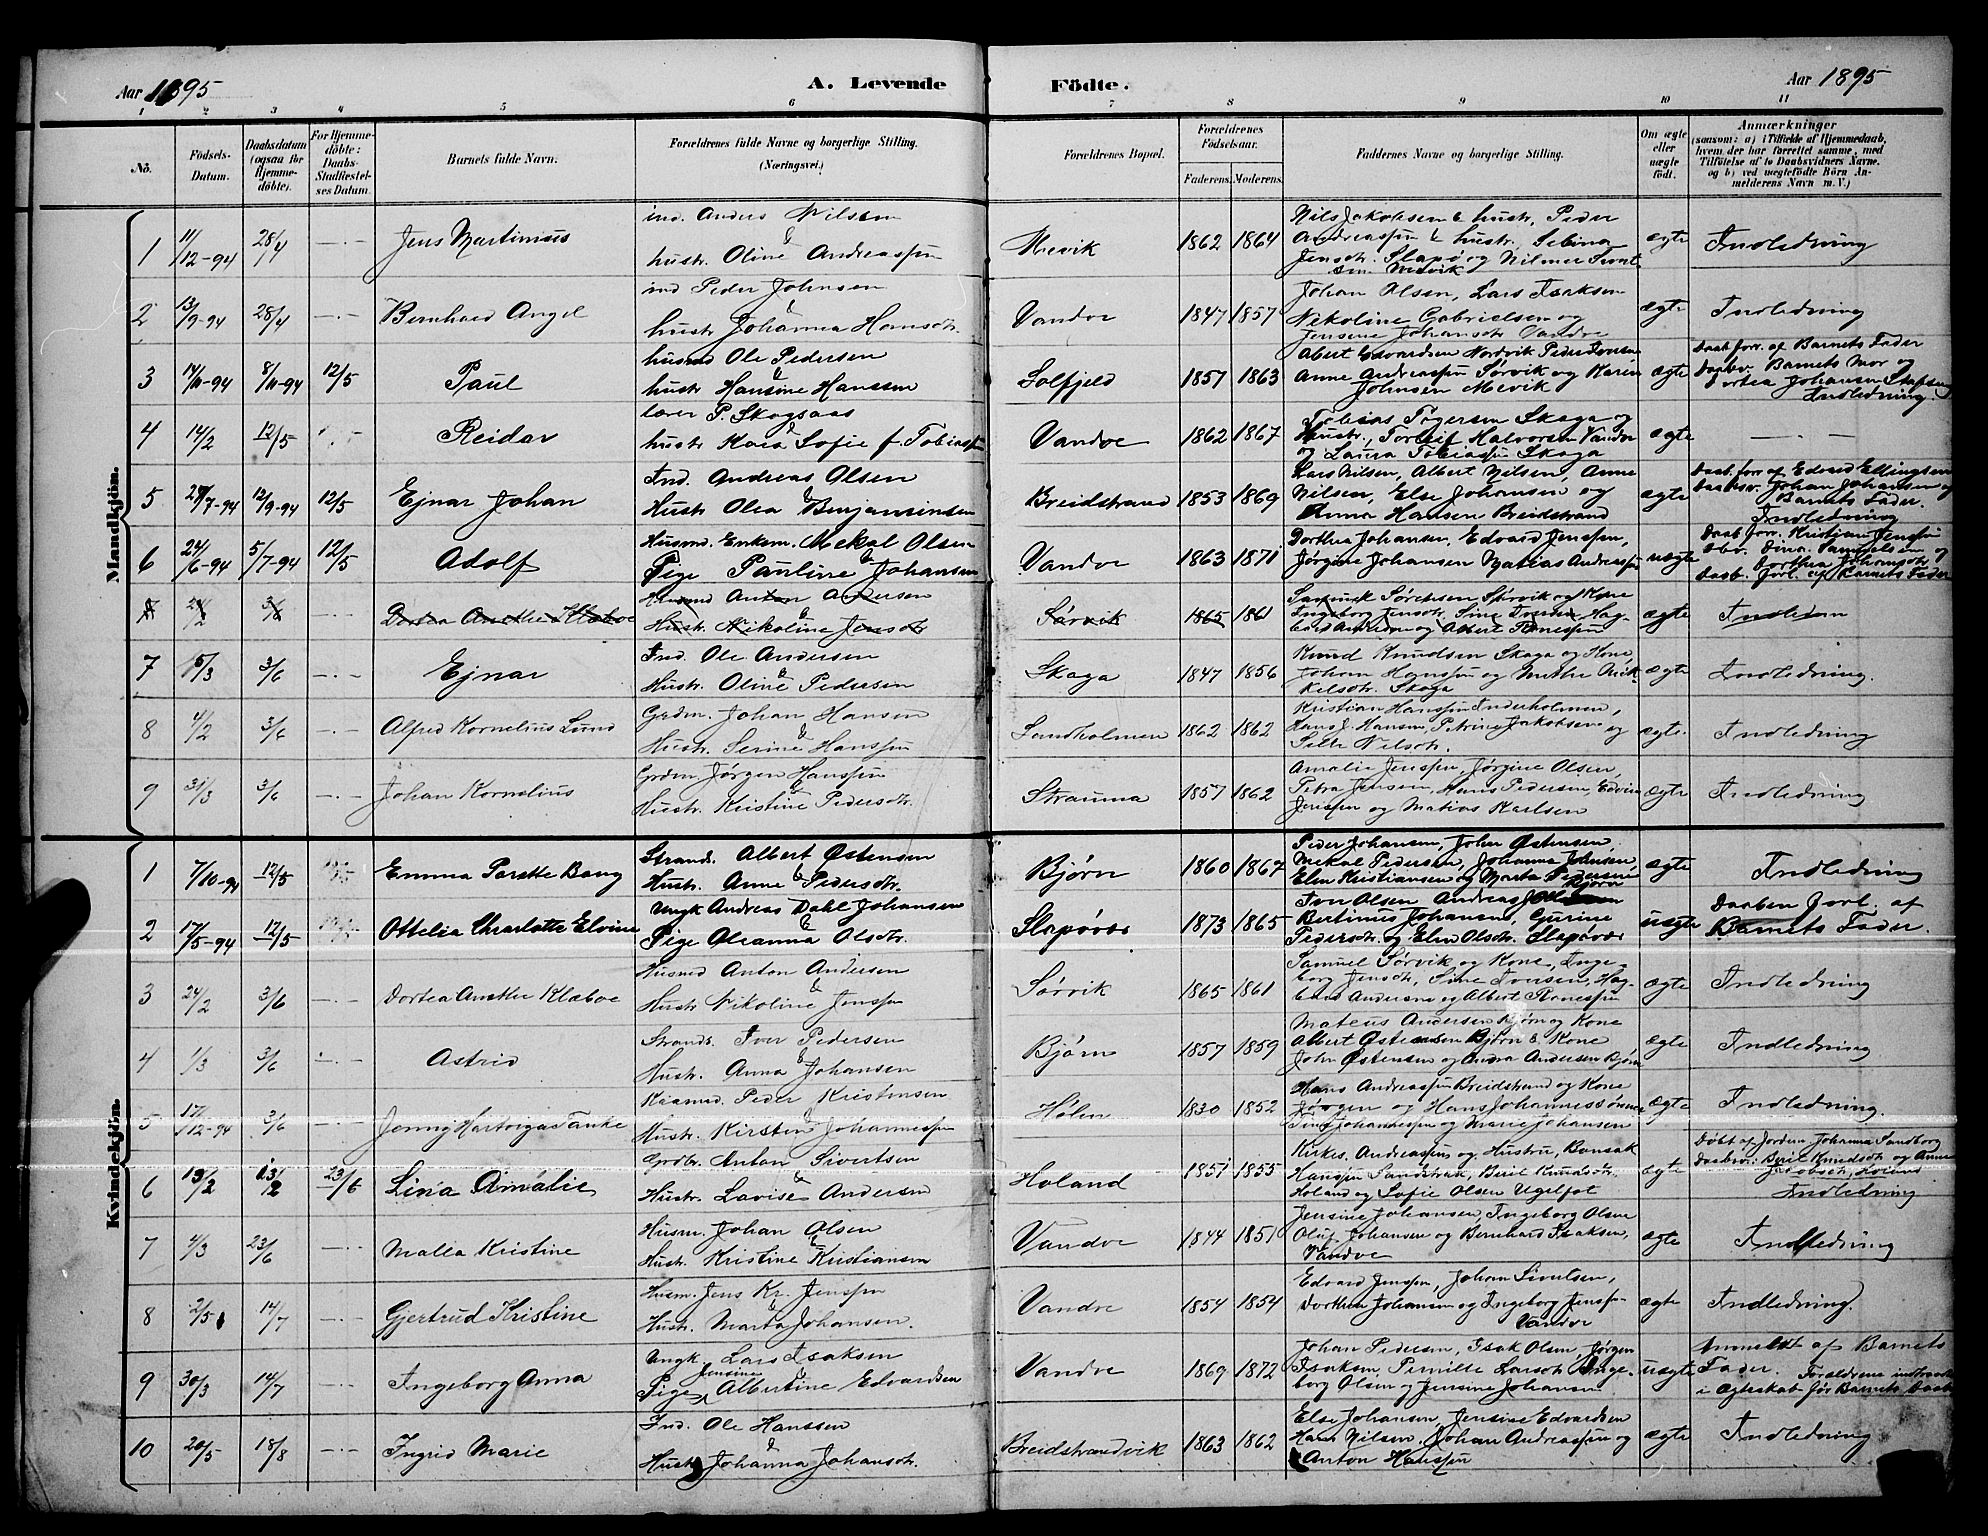 Aar 1895
A. Levende
Födte.
Aar 1895
1 2 3 4 5 6 7 8 9 10 11
No.
Födsels-
Datum.
Daabsdatum
(ogsaa for
Hjemme-
döbte).
For Hjemme-
döbte:
Daabs-
Stadfæstel-
ses Datum.
Barnets fulde Navn.
Forældrenes fulde Navne og borgerlige Stilling.
(Næringsvei.)
Forældrenes Bopæl.
Forældrenes
Födselsaar.
Faderens. Moderens.
Faddernes Navne og borgerlige Stilling.
Om ægte
eller
uægte
födt.
Anmærkninger
(saasom: a) i Tilfælde af Hjemmedaab,
hvem der har forrettet samme, med
Tilföielse af to Daabsvidners Navne.
og b) ved uægtefödte Börn An-
melderens Navn m. V.)
Mandkjön.
1 11/12-94 28/4 Jens Martinius
ind. Anders Nilsen
&
hustr. Oline Andreassen
Mevik 1862 1864
Nils Jakobsen & hustr, Peder
Andreassen & hustr. Sebina
Jensdt. Slapö og Nilmer Sivert
sen Mevik
ægte Indledning
2 13/9-94 28/4 Bernhard Angel
ind Peder Johnsen
&
hustr Johanna Hansdtr.
Vandve 1847 1857
Johan Olsen, Lars Isaksen
Nikoline Gabrielsen og
Jensine Johansdtr Vandve
ægte Indledning
3 14/11-94 8/11-94 12/5 Paul
husmd Ole Pedersen
&
hustr Hansine Hanssen
Solfjeld 1857 1863
Albert Edvardsen Nordvik Peder Iversen
Anne Andreassen Sörvik og Karen
Johnsen Mevik
ægte
Daab forr. af Barnets Fader
Daabsv. Barnets Mor og
Dortea Johansen
Indledning.
4 14/2 12/5 Reidar
lærer P. Skogsaas
&
hustr Kaia Sofie f. Tobiassen
Vandve 1862 1867
Tobias Togersen Skaga og
Hustr., Torleif Halvorsen Vandve
og Laura Tobiassen Skaga
ægte
5 27/7-94 12/9-94 12/5 Ejnar Johan
Ind. Andreas Olsen
&
Hustr Olea Benjaminsen
Breidstrand 1853 1869
Lars Nilsen, Albert Nilsen, Anne
Nilsen, Else Johansen og
Anna Hansen Breidstrand
ægte
Daab. forr. af Edvard Ellingsen
Daabsv. Johan Johansen og
Barnets Fader.
Indledning
6 24/6-94 5/7-94 12/5 Adolf
Husmd. Enkem. Mekal Olsen
&
Pige Pauline Johansen
Vandve 1863 1871
Dorthea Johansen, Edvard Jenssen,
Jørgine Johansen Matias Andreassen
uægte
Daab forr. Kristian Jenssen
Dbv. Dina Samuelsen og
Dorthea Johansdtr
Daab. forl. af Barnets Fader
7 24/2 3/6 Dortea Anethe Klæboe
Husmd Anton Andersen
&
Hustr. Nikoline Jensdtr
Sørvik 1865 1861
Samuel Sörensen Sørvik og Kone
Ingeborg Jensdtr, Sine Iversen Hag-
bart Andersen og Albert Tönessen
ægte Indledning
7 5/3 3/6 Ejnar
Ind. Ole Andersen
&
Hustr. Oline Pedersen
Skaga 1847 1856
Knud Knudsen Skaga og Kone
Johan Hanssen og Methe Mik-
kelsdtr. Skaga
ægte Indledning.
8 4/2 3/6 Alfred Kornelius Lund
Grdm. Johan Hansen
&
Hustr. Serine Hanssen
Sandholmen 1862 1862
Kristian Hanssen Inderholmen,
Hans J. Hansen, Petrine Jakobsen og
Nilsdtr.
ægte. Indledning
9 31/3 3/6 Johan Kornelius
Grdm Jørgen Hanssen
&
Hustr. Kristine Pedersdtr.
Strauma 1857 1862
Amalie Jenssen, Jørgine Olsen,
Petra Jensen, Hans Pedersen, Edvin
Jenssen og Matias Karlsen
ægte Indledning
Kvindekjön.
1 7/10-94 12/5 Emma Parette Bang
Strands. Albert Østensen
&
Hustr. Anne Pedersdtr.
Bjørn 1860 1867
Peder Johansen, John Østensen,
Mekal Pedersen, Johanna Johnsen,
Elen Kristiansen og Marta Pedersen
Bjørn
ægte Indledning
2 17/5-94 12/5 Ottelia Charlotte Elvine
Ungk Andreas Dahl Johansen
&
Pige Oleanna Olsdtr.
Slapøvær 1873 1865
Ion Olsen Andreas
Bertinius Johansen, Gurine
Pedersdtr og Elen Olsdtr. Slapøvær
uægte
Daaben forl. af
Barnets Fader.
3 24/2 3/6 Dortea Anethe Klæboe
Husmd Anton Andersen
&
Hustr Nikoline Jenssen
Sørvik 1865 1861
Samuel Sørvik og Kone, Inge-
borg Jensdtr, Sine Iversen, Hag-
bart Andersen og Albert Tönessen
ægte Indledning
4 1/3 3/6 Astrid
Strands. Iver Pedersen
&
Hustr. Anna Johansen
Bjørn 1857 1859
Mateus Andersen Bjørn og Kone
Albert Østensen Bjørn & Kone
John Østensen og Anna Andersen Bjørn
ægte Indledning
5 17/12-94 3/6 Jenny Hartviga Tanke
Kaarmd. Peder Kristensen
&
Hustr. Kirsten Johannessen
Holm 1830 1852
Hans Andreassen Breidstrand og Kone
Jørgen og Hans Johannessönner
Johannessen og Marie Johansen
ægte Indledning.
6 13/2 13/2 23/6 Lina Amalie
Grdbr. Anton Sivertsen
&
Hustr. Lovise Andersen
Holand 1851 1855
Kirkes. Andreassen og Hustru, Bonsak
Hanssen Sandstrak, Beril Knudsdtr.
Holand og Sofie Olsen Ugelfot
ægte
Döbt af Jordem Johanna Sandborg
Daabsv: Beril Knudsdtr og Anne
Jakobsdtr, Holand
Indledning
7 4/3 23/6 Malla Kristine
Husm. Johan Olsen
&
Hustr. Kristine Kristiansen
Vandve 1844 1851
Jensine Johansen, Ingeborg Olsen
Oluf Johansen og Bernhard Isaksen,
Vandve
ægte Indledning
8 2/5 14/7 Gjertrud Kristine
Husm. Jens Kr. Jenssen
&
Hustr. Marta Johansen.
Vandve 1854 1854
Edvard Jenssen, Johan Sivertsen,
Dorthea Johansen og Ingeborg Jenssen
Vandve
ægte Indledning.
9 30/3 14/7 Ingeborg Anna
Ungk Lars Isaksen
Jensine &
Pige Albertine Edvardsen
Vandve 1869 1872
Johan Pedersen, Isak Olsen, Jørgen
Isaksen, Pernille Larsdtr, Inge-
borg Olsen og Jensine Johansen
uægte
Anmeldt af Barnets
Fader. Forældrene indtraadt
i Ægteskab før Barnets Daab
10 20/5 18/8 Ingrid Marie
Ind. Ole Hanssen
&
Hustr Johanna Johansdtr.
Breidstrandvik 1863 1862
Else Johansen, Jensine Edvardsen
Hans Nilsen, Johan Andreassen og
Anton Hanssen
ægte Indledning